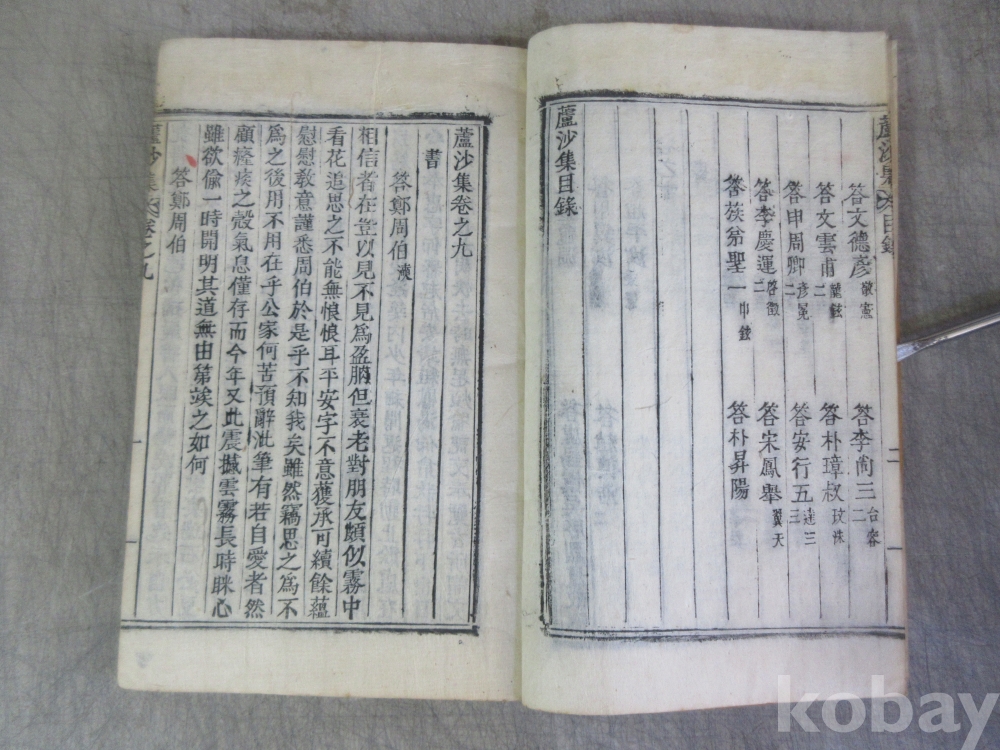 答文德彦 敬憲 答李尙三 台容 二
答文雲甫 龍鉉 二 答朴璋叔 玟洙
答申周卿 彦冕 二 答安行五 達三 三
答李慶運 啓徵 二 答宋鳳擧 翼天
答族爷聖一 申鉉 答朴昇陽
蘆沙集目錄
二
蘆沙集卷之九
書
答鄭周伯 漢
相信者在豈以見不見爲盈朒但衰老對朋友頗似霧中
看花追思之不能無悢悢耳平安字不意獲承可續餘蘊
慰慰敎意謹悉周伯於是乎不知我矣雖然竊思之爲不
爲之後用不用在乎公家何苦預辭泚筆有若自愛者然
顧癃瘓之殼氣息僅存而今年又此震撼雲霧長時眯心
雖欲偷一時開明其道無由第竢之如何
答鄭周伯
蘆沙集 卷之九
一
kobay